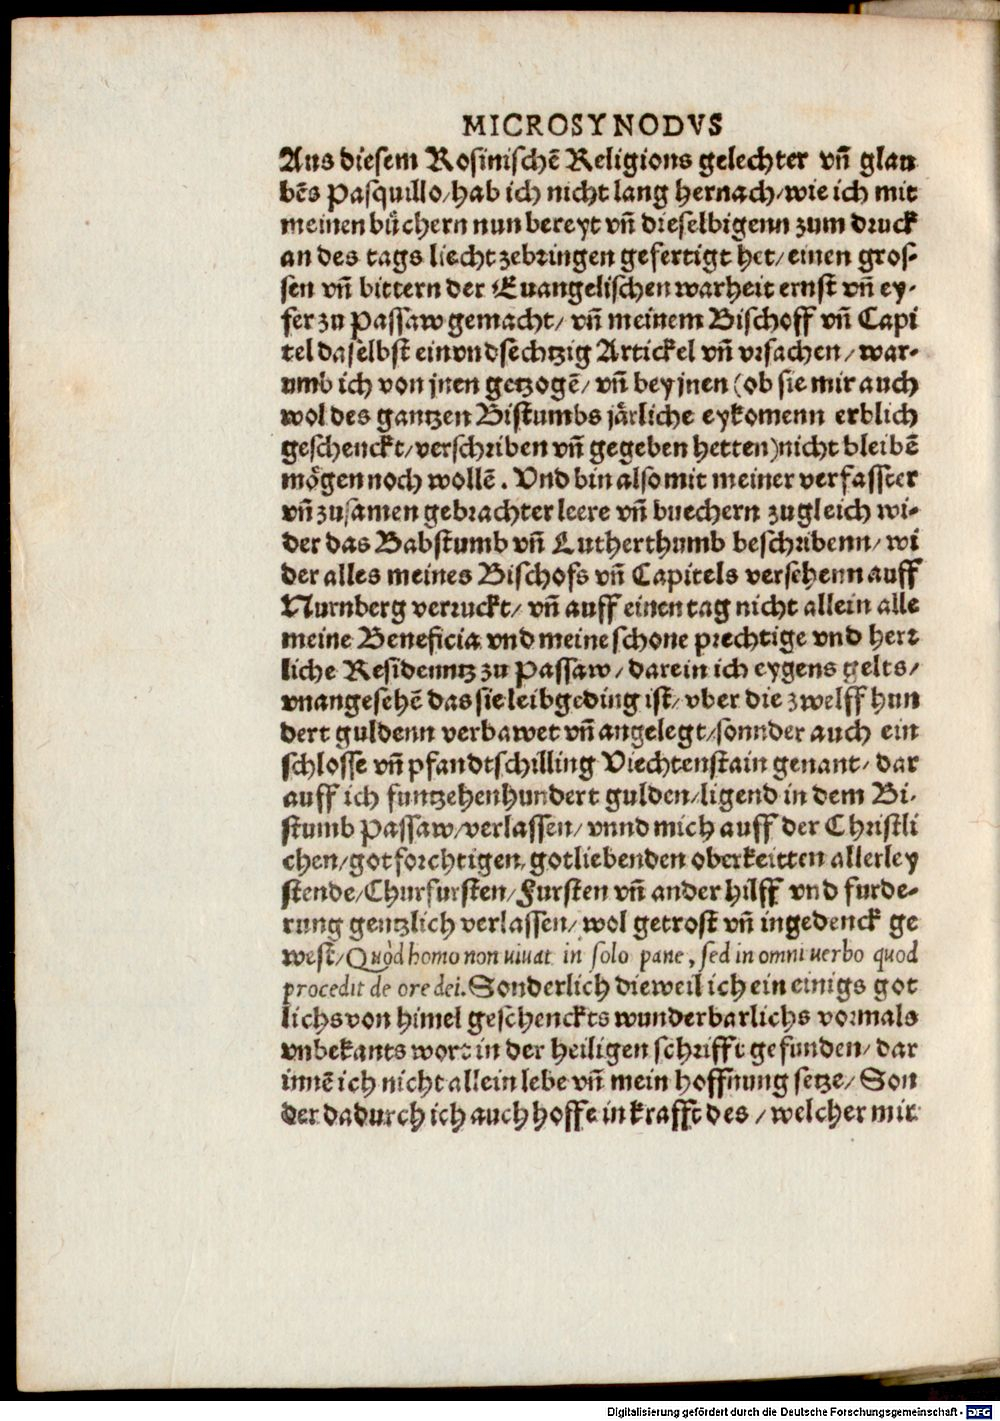 MICROSYNODVS
Aus diesem Rosinischē Religions gelechter vñ glau
bēs Pasquillo/hab ich nicht lang hernach/wie ich mit
meinen bůchern nun bereyt vñ dieselbigenn zum druck
an des tags liecht zebringen gefertigt het/einen gros-
sen vñ bittern der Euangelischen warheit ernst vñ ey-
fer zu Passaw gemacht/ vñ meinem Bischoff vñ Capi
tel daselbst einvndsechtzig Artickel vñ vrsachen/ war-
umb ich von jnen getzogē/ vñ bey jnen (ob sie mir auch
wol des gantzen Bistumbs jårliche eykomenn erblich
geschenckt/verschriben vñ gegeben hetten)nicht bleibē
mögen noch wollē. Vnd bin also mit meiner verfasster
vñ zusamen gebrachter leere vñ buechern zugleich wi-
der das Babstumb vñ Lutherthumb beschribenn/ wi
der alles meines Bischofs vñ Capitels versehenn auff
Nurnberg verruckt/ vñ auff einen tag nicht allein alle
meine Beneficia vnd meine schone prechtige vnd herr
liche Residenntz zu Passaw/ darein ich eygens gelts/
vnangesehē das sie leibgeding ist/ vber die zwelff hun
dert guldenn verbawet vñ angelegt/sonnder auch ein
schlosse vñ pfandtschilling Viechtenstain genant/ dar
auff ich funtzehenhundert gulden/ligend in dem Bi-
stumb Passaw/verlassen/ vnnd mich auff der Christli
chen/gotforchtigen, gotliebenden oberkeitten allerley
stende/Churfursten/Fursten vñ ander hilff vnd furde-
rung gentzlich verlassen/ wol getrost vñ ingedenck ge
west/Quòd homo non uiuat in solo pane, sed in omni uerbo quod
procedit de ore dei. Sonderlich dieweil ich ein einigs got
lichs von himel geschenckts wunderbarlichs vormals
vnbekants wort in der heiligen schrifft gefunden/ dar
innē ich nicht allein lebe vñ mein hoffnung setze/ Son
der dadurch ich auch hoffe in krafft des / welcher mir
Digitalisierung gefördert durch die Deutsche Forschungsgemeinschaft - DFG